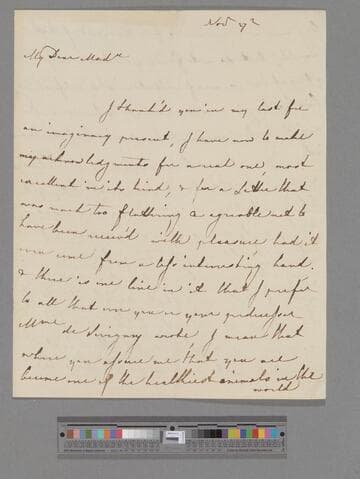 Nov 27th
My Dear Mad.m
I thank'd you in my last for
an imaginary present, I have now to make
my acknowledgments for a real one, most
excellent in its kind, & for a Letter that
was much too flattering & agreeable not to
have been receiv'd with pleasure, had it
even come from a less interesting hand.
& there is one line in it that I prefer
to all that ever you or your predecessor
Mme de Sevigny wrote, I mean that
where you assure me that you are
become one of the healthiest animals in the
world